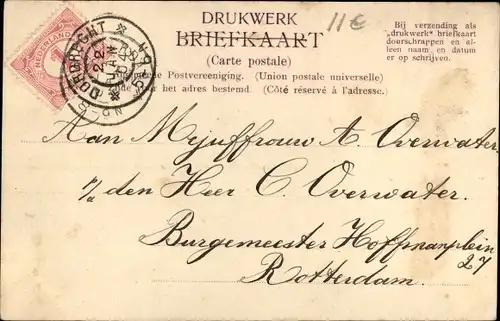 DRUKWERK
BRIEFKAART
(Carte postale)
Algemeene Postvereeniging. (Union postale universelle)
Zijde voor het adres bestemd. (Côté réservé à l'adresse.)
Bij verzending als
„drukwerk" briefkaart
doorschrappen en al-
leen naam en datum
er op schrijven.
11€
NEDERLAND
DORDRECHT
Aan Mejuffrouw A. Overwater
p/a den Heer C. Overwater.
Burgemeester Hoffmanplein
27
Rotterdam.